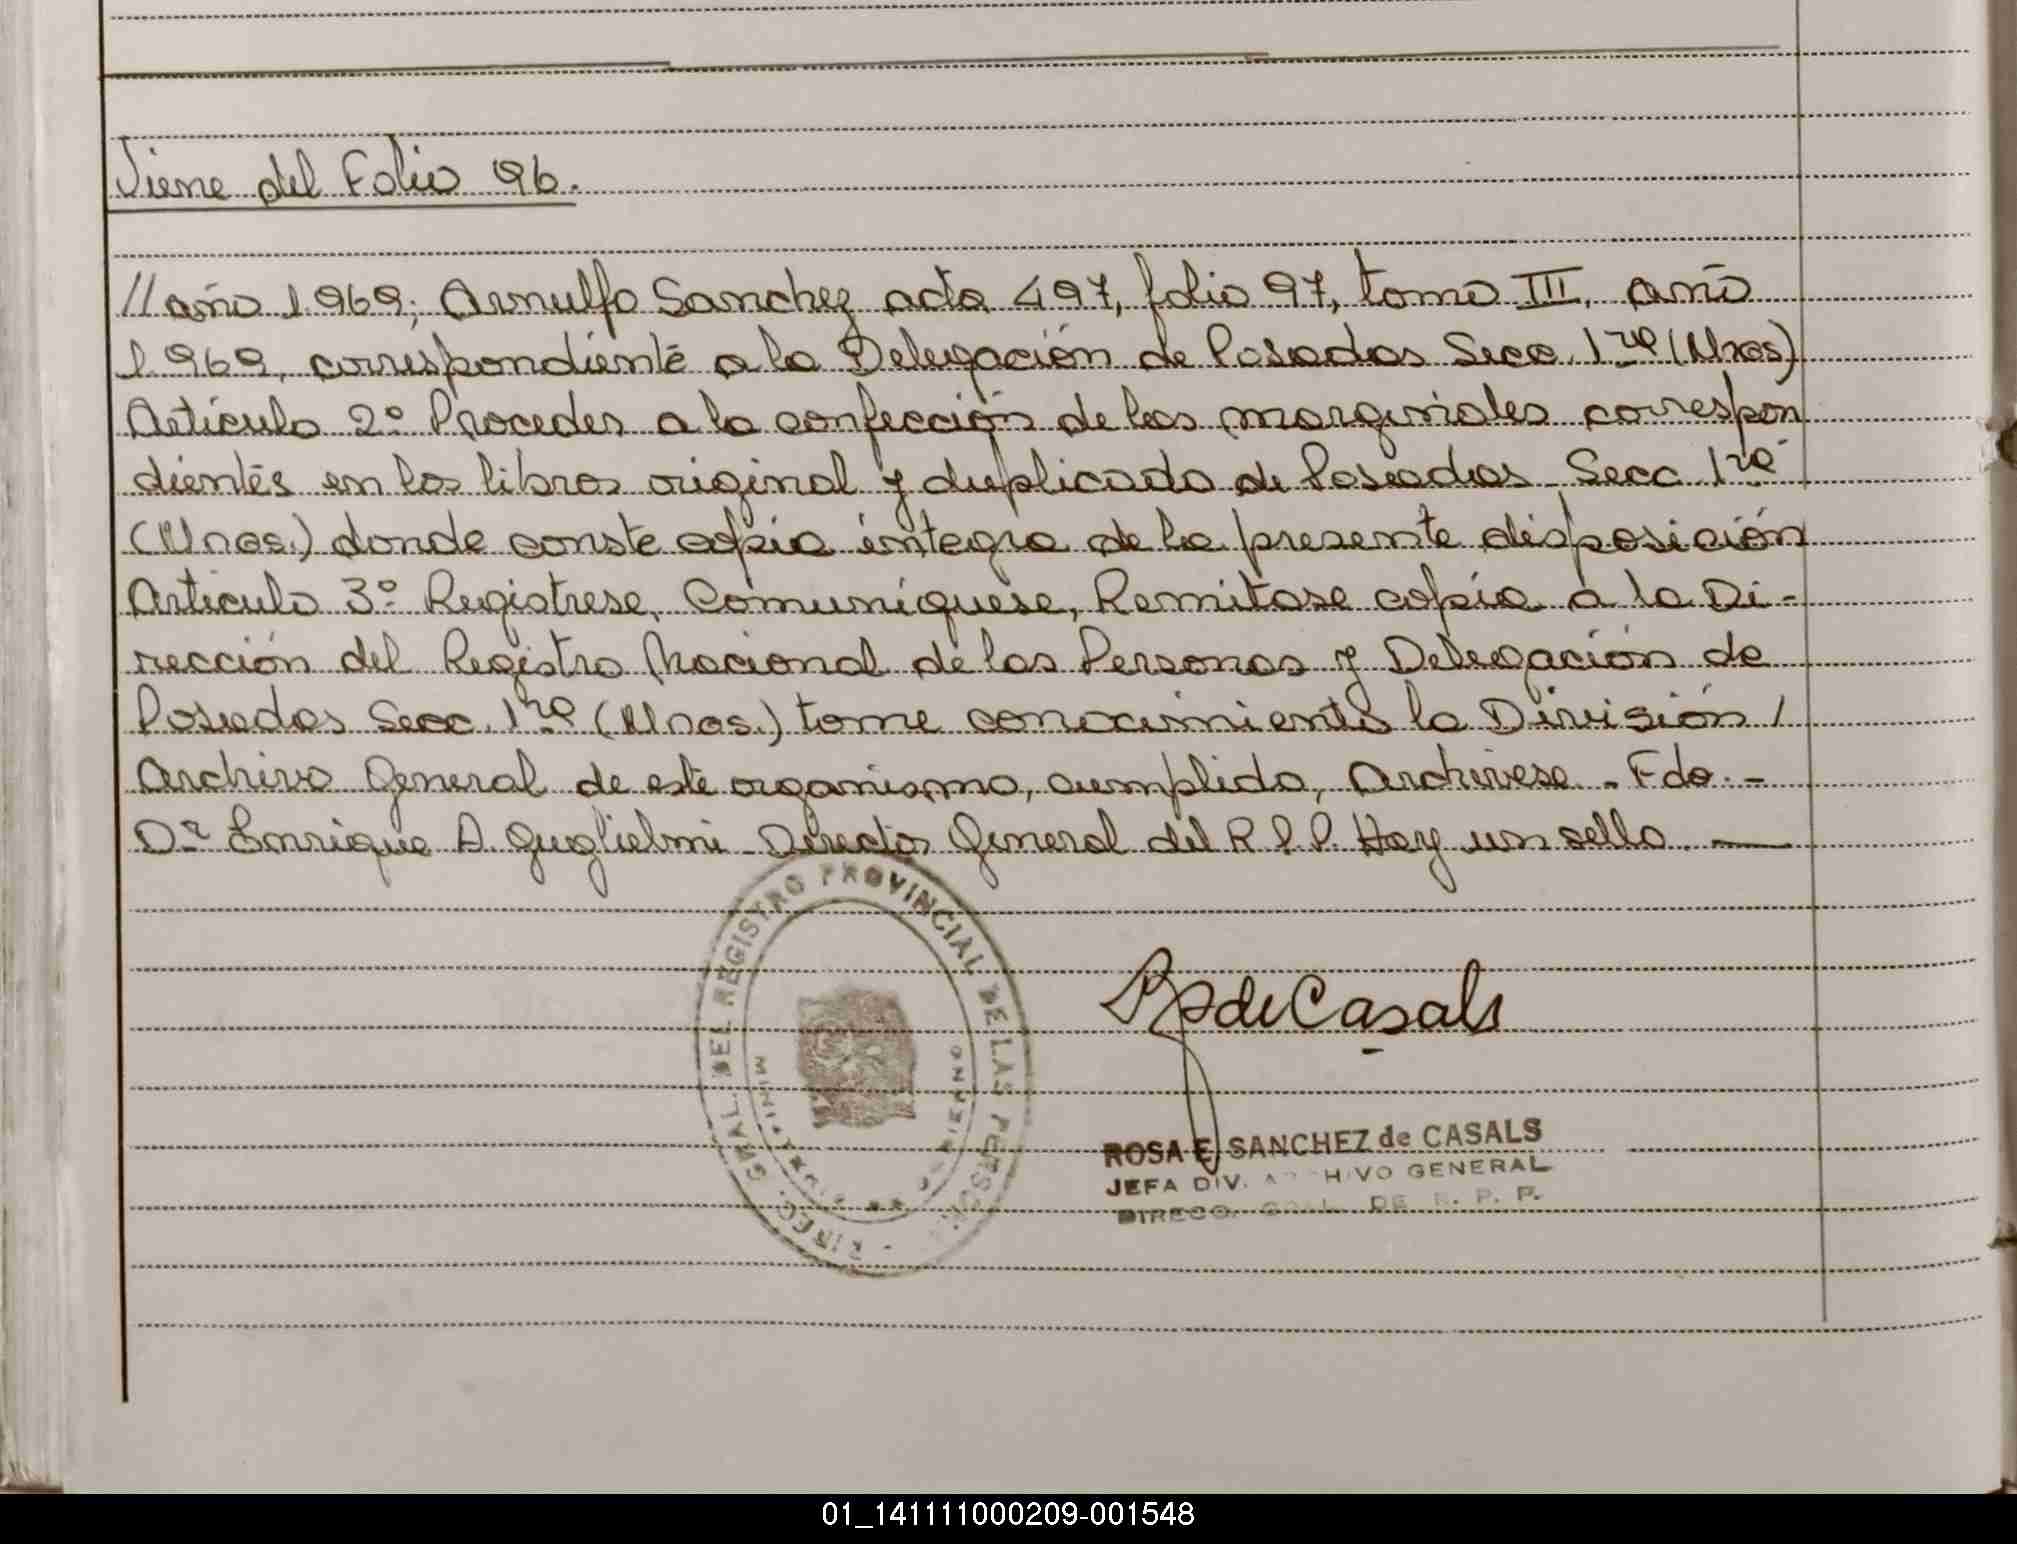 Viene del Folio 96.
//año 1.969; Arnulfo Sanchez acta 497, folio 97, tomo III, año
1.969, correspondiente a la Delegación de Posadas Secc 1ra (Mnes)
Artículo 2º Proceder a la confección de las marginales correspon
dientes en los libros original y duplicado de Posadas Secc 1ra
(Mnes.) donde conste copia integra de la presente disposición
Artículo 3º Registrese, Comuníquese, Remitase copia a la Di-
rección del Registro Nacional de las Personas y Delegación de
Posadas Secc. 1ra (Mnes.) tome conocimiento la División /
Archivo General de este organismo, cumplido, Archivese. Fdo.-
Dr Enrique A. Guglielmi Director General del R.P.P. Hay un sello.
DIREC. GRAL. DEL REGISTRO PROVINCIAL DE LAS PERSONAS
MINISTERIO DE GOBIERNO
R S de Casals
ROSA E. SANCHEZ de CASALS
JEFA DIV. ARCHIVO GENERAL
DIRECC. GRAL. DE R. P. P.
01_141111000209-001548